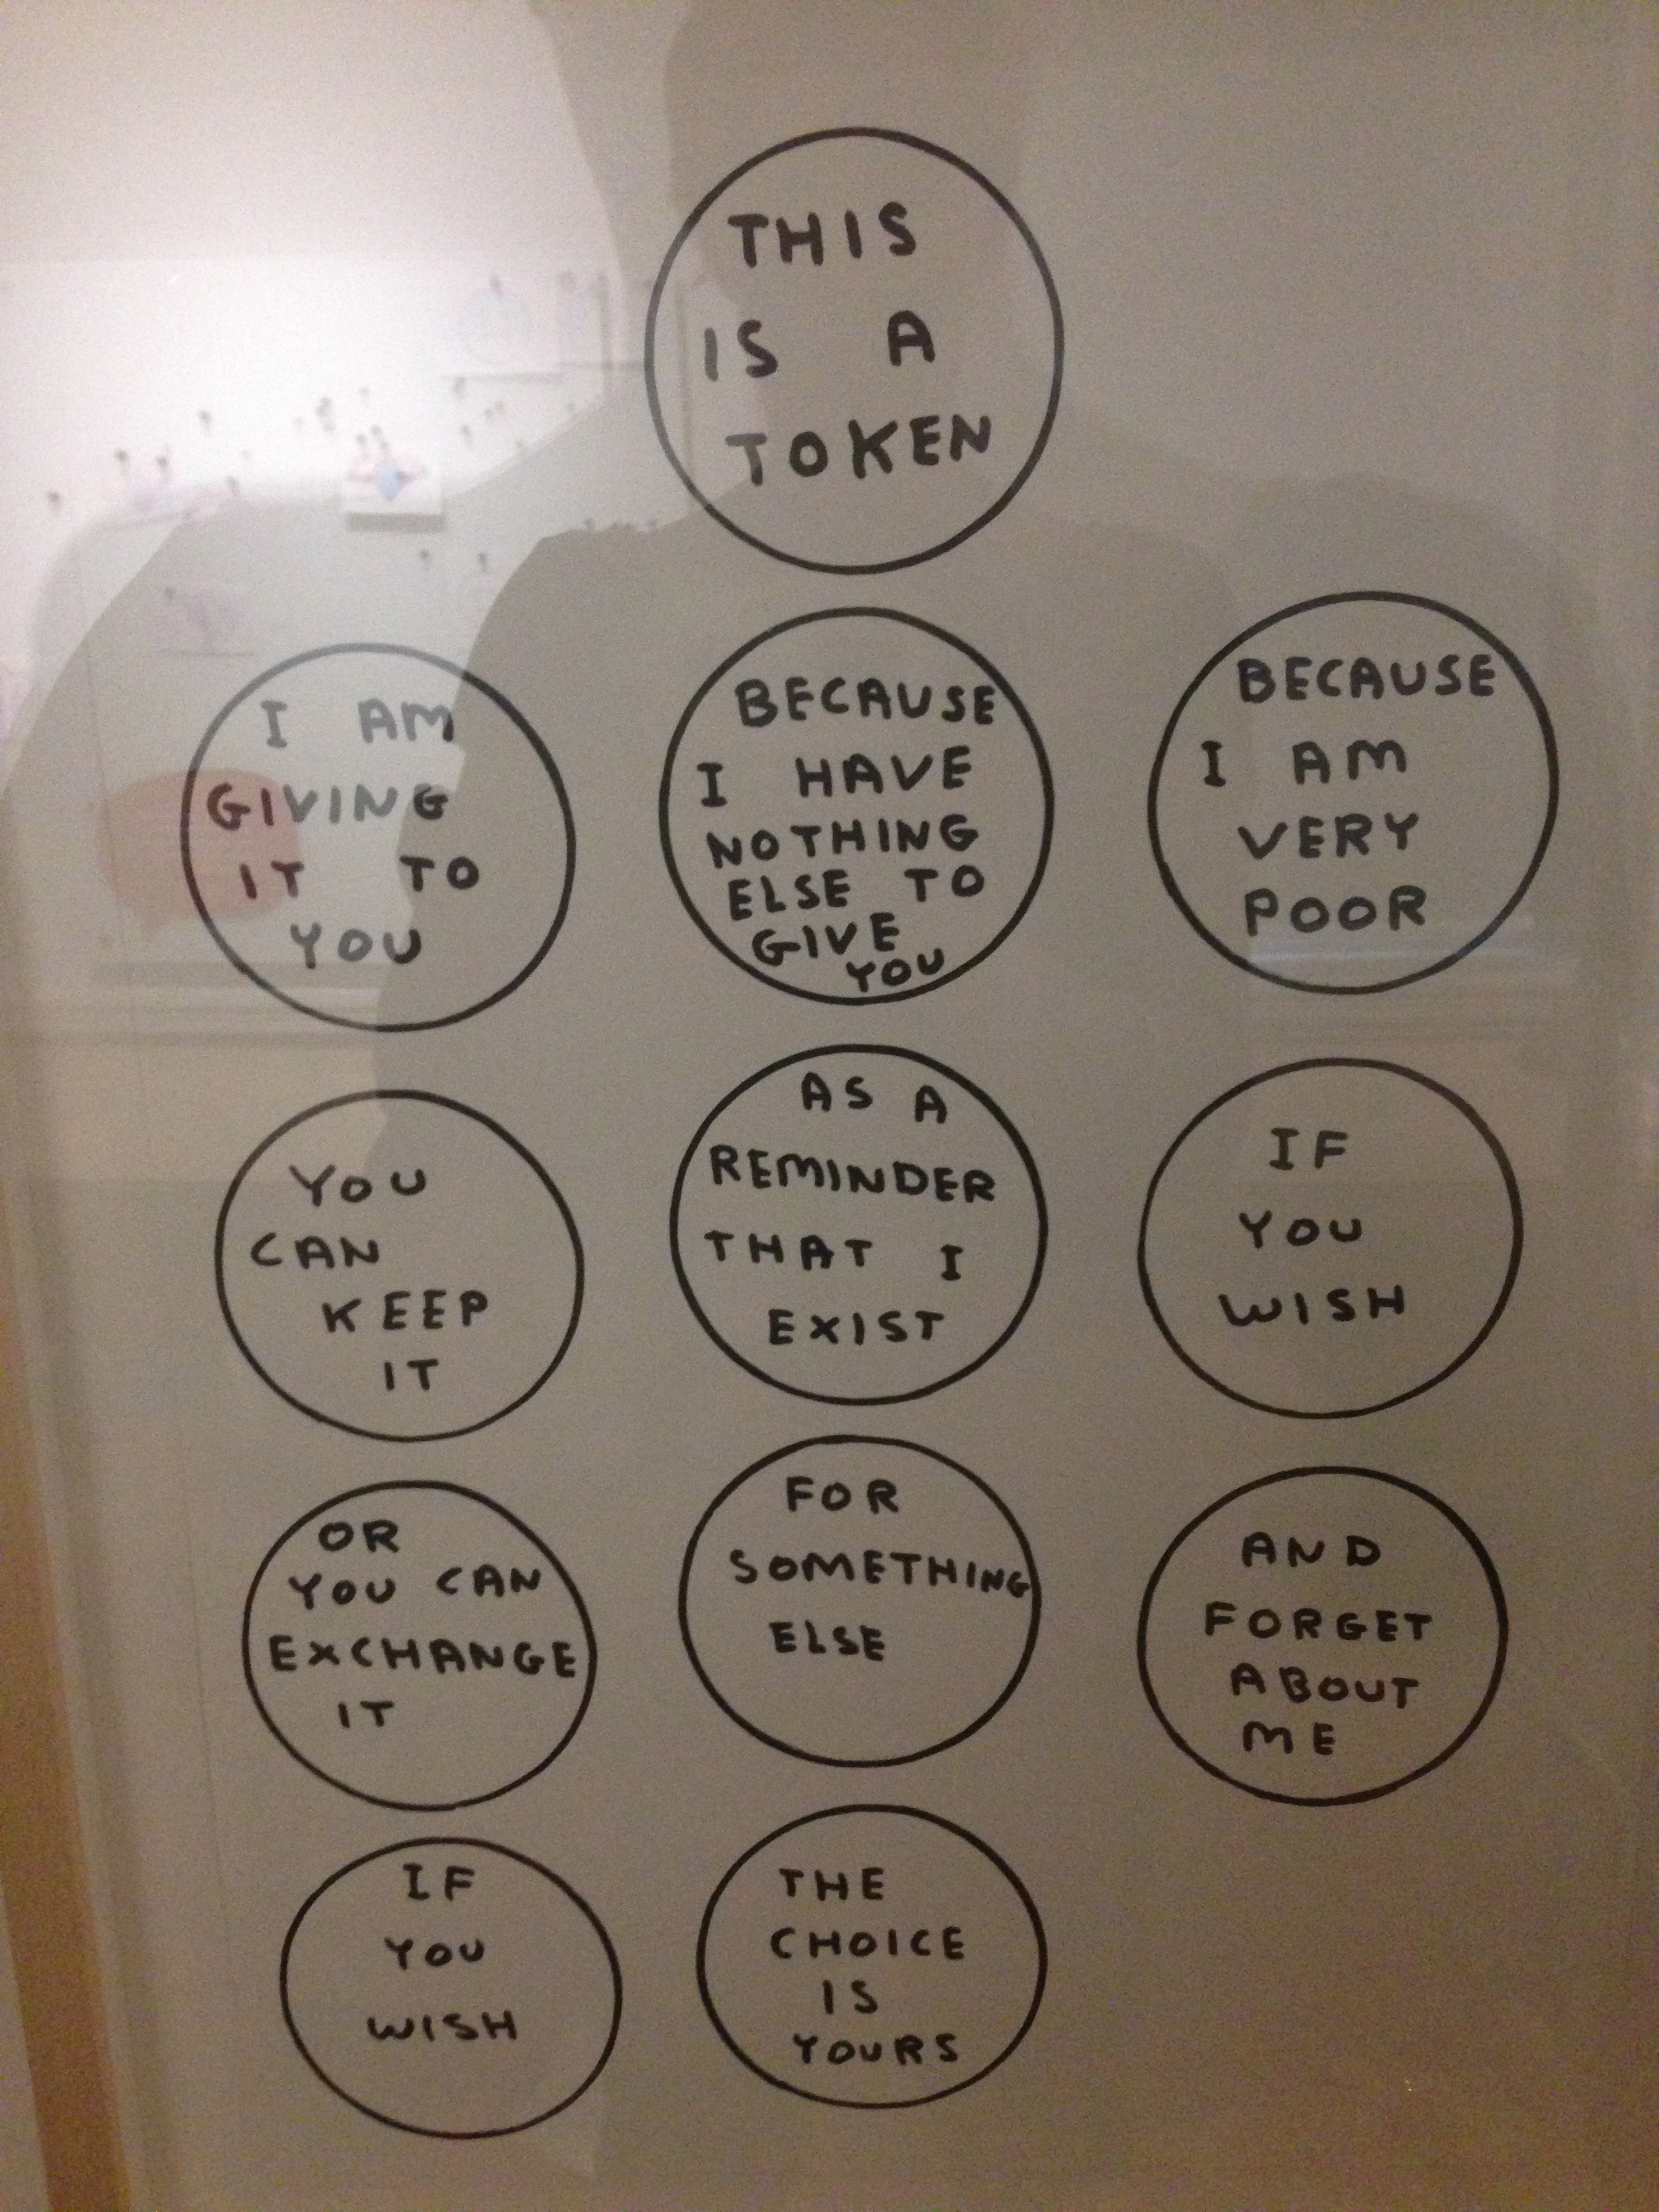 THIS
IS A
TOKEN
I AM
GIVING
IT TO
YOU
BECAUSE
I HAVE
NOTHING
ELSE TO
GIVE
YOU
BECAUSE
I AM
VERY
POOR
YOU
CAN
KEEP
IT
AS A
REMINDER
THAT I
EXIST
IF
YOU
WISH
OR
YOU CAN
EXCHANGE
IT
FOR
SOMETHING
ELSE
AND
FORGET
ABOUT
ME
IF
YOU
WISH
THE
CHOICE
IS
YOURS